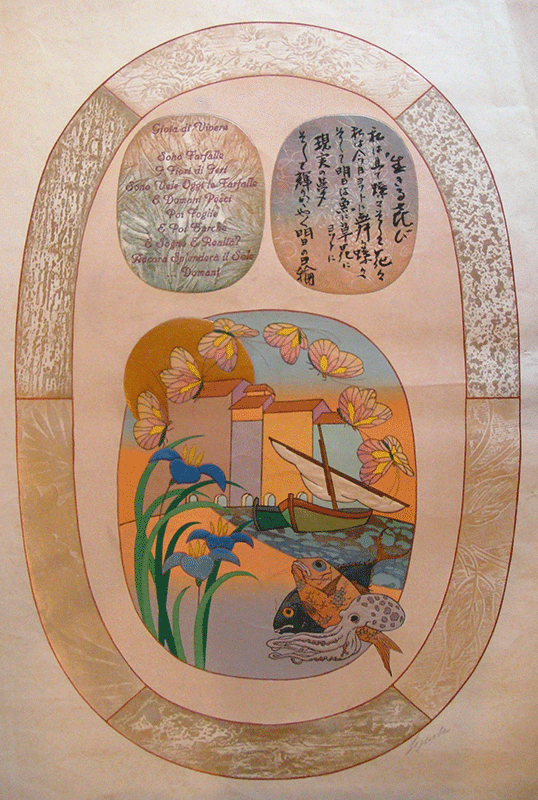 Gioia di Vivere
Sono Farfalle
I Fiori di Ieri
Sono Vele Oggi le Farfalle
E Domani Pesci
Poi Foglie
E Poi Barche
E Sogno E Realtà?
Ancora Splenderà il Sole
... Domani
生きる喜び
私は 蝶々そして花々
私は今日ヨットに舞う蝶々
そして明日は魚に草花に
ヨットに
現実の夢
そして 明日の日輪